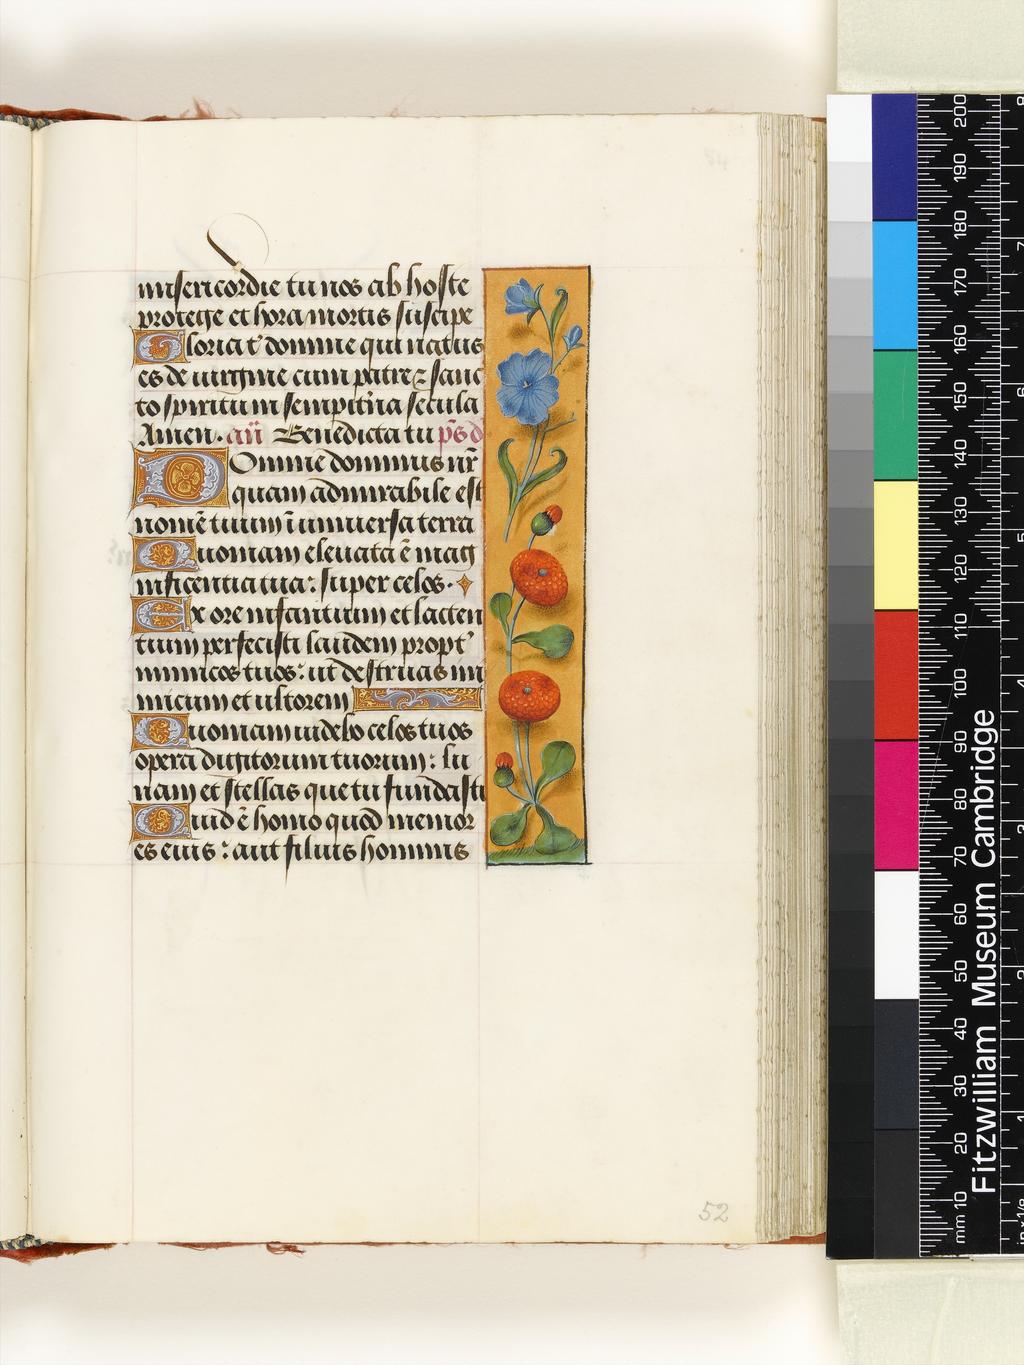 misericordie tu nos ab hoste
protege et hora mortis suscipe
Gloria t' domine qui natus
es de uirgine cum patre z sanc
to spiritu in sempit'na secula
Amen. añ Benedicta tu p̄s d
Domine dominus nr̄
quam admirabile est
nomē tuum ī uniuersa terra
Quoniam eleuata ē mag
nificentia tua: super celos.
Ex ore infantium et lacten
tium perfecisti laudem propt'
inimicos tuos: ut destruas ini
micum et ultorem
Quoniam uidebo celos tuos
opera digitorum tuorum: lu
nam et stellas que tu fundasti
Quid ē homo quod memor
es eius: aut filius hominis
52
Fitzwilliam Museum Cambridge
mm 10 20 30 40 50 60 70 80 90 100 110 120 130 140 150 160 170 180 190 200